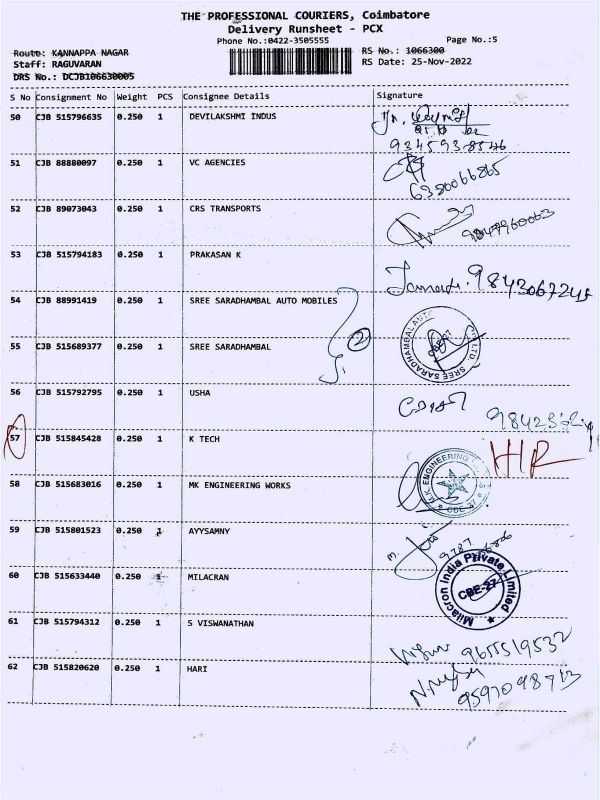 THE PROFESSIONAL COURIERS, Coimbatore
Delivery Runsheet - PCX
Phone No.:0422-3505555
Page No.:5
Route: KANNAPPA NAGAR
RS No.: 1066300
Staff: RAGUVARAN
RS Date: 25-Nov-2022
DRS No.: DCJB106630005
S No Consignment No Weight PCS Consignee Details Signature
50 CJB 515796635 0.250 1 DEVILAKSHMI INDUS
9345938546
51 CJB 88880097 0.250 1 VC AGENCIES
6380066865
52 CJB 89073043 0.250 1 CRS TRANSPORTS
9047960063
53 CJB 515794183 0.250 1 PRAKASAN K
9843067245
54 CJB 88991419 0.250 1 SREE SARADHAMBAL AUTO MOBILES
2
55 CJB 515689377 0.250 1 SREE SARADHAMBAL
SREE SARADHAMBAL AUTO LTD CBE-27
56 CJB 515792795 0.250 1 USHA
57 CJB 515845428 0.250 1 K TECH
58 CJB 515683016 0.250 1 MK ENGINEERING WORKS
M.K ENGINEERING CBE-27
59 CJB 515801523 0.250 1 AYYSAMNY
60 CJB 515633440 0.250 1 MILACRAN
Milacron India Private Limited CBE-27
61 CJB 515794312 0.250 1 S VISWANATHAN
9655519532
62 CJB 515820620 0.250 1 HARI
9597098713